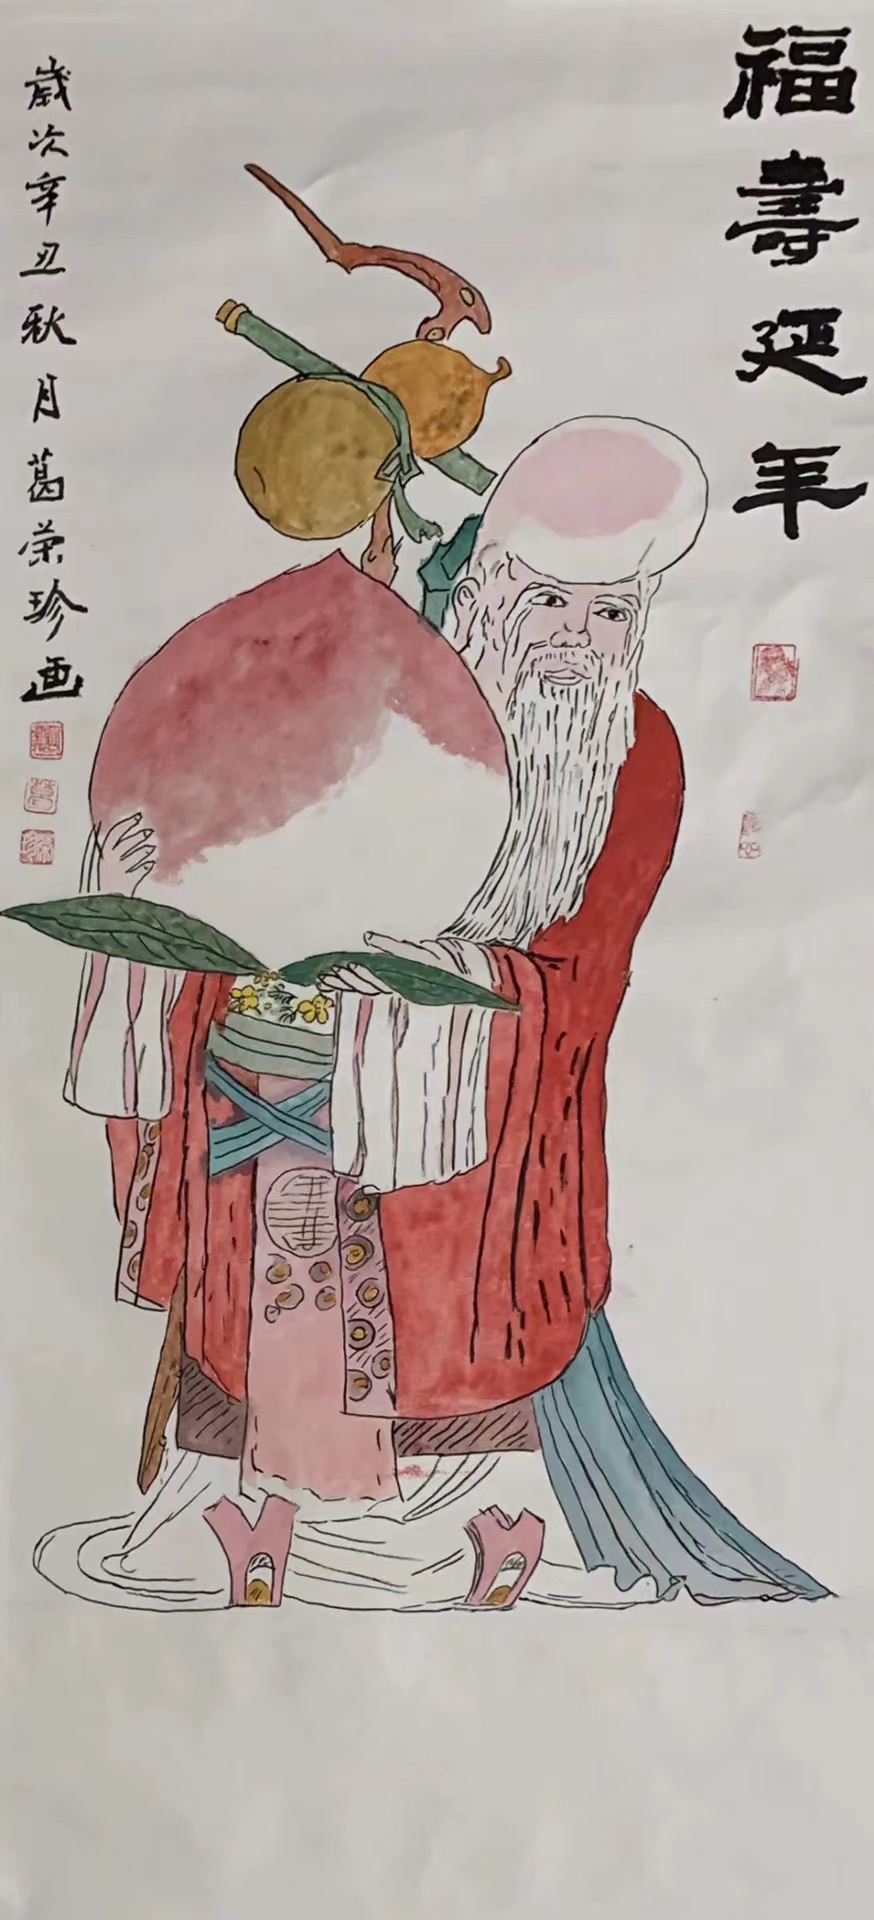 福壽延年
歲次辛丑秋月葛荣珍画